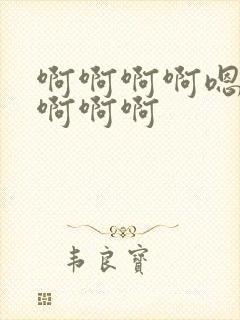 啊啊啊啊嗯
啊啊啊
韦良宝